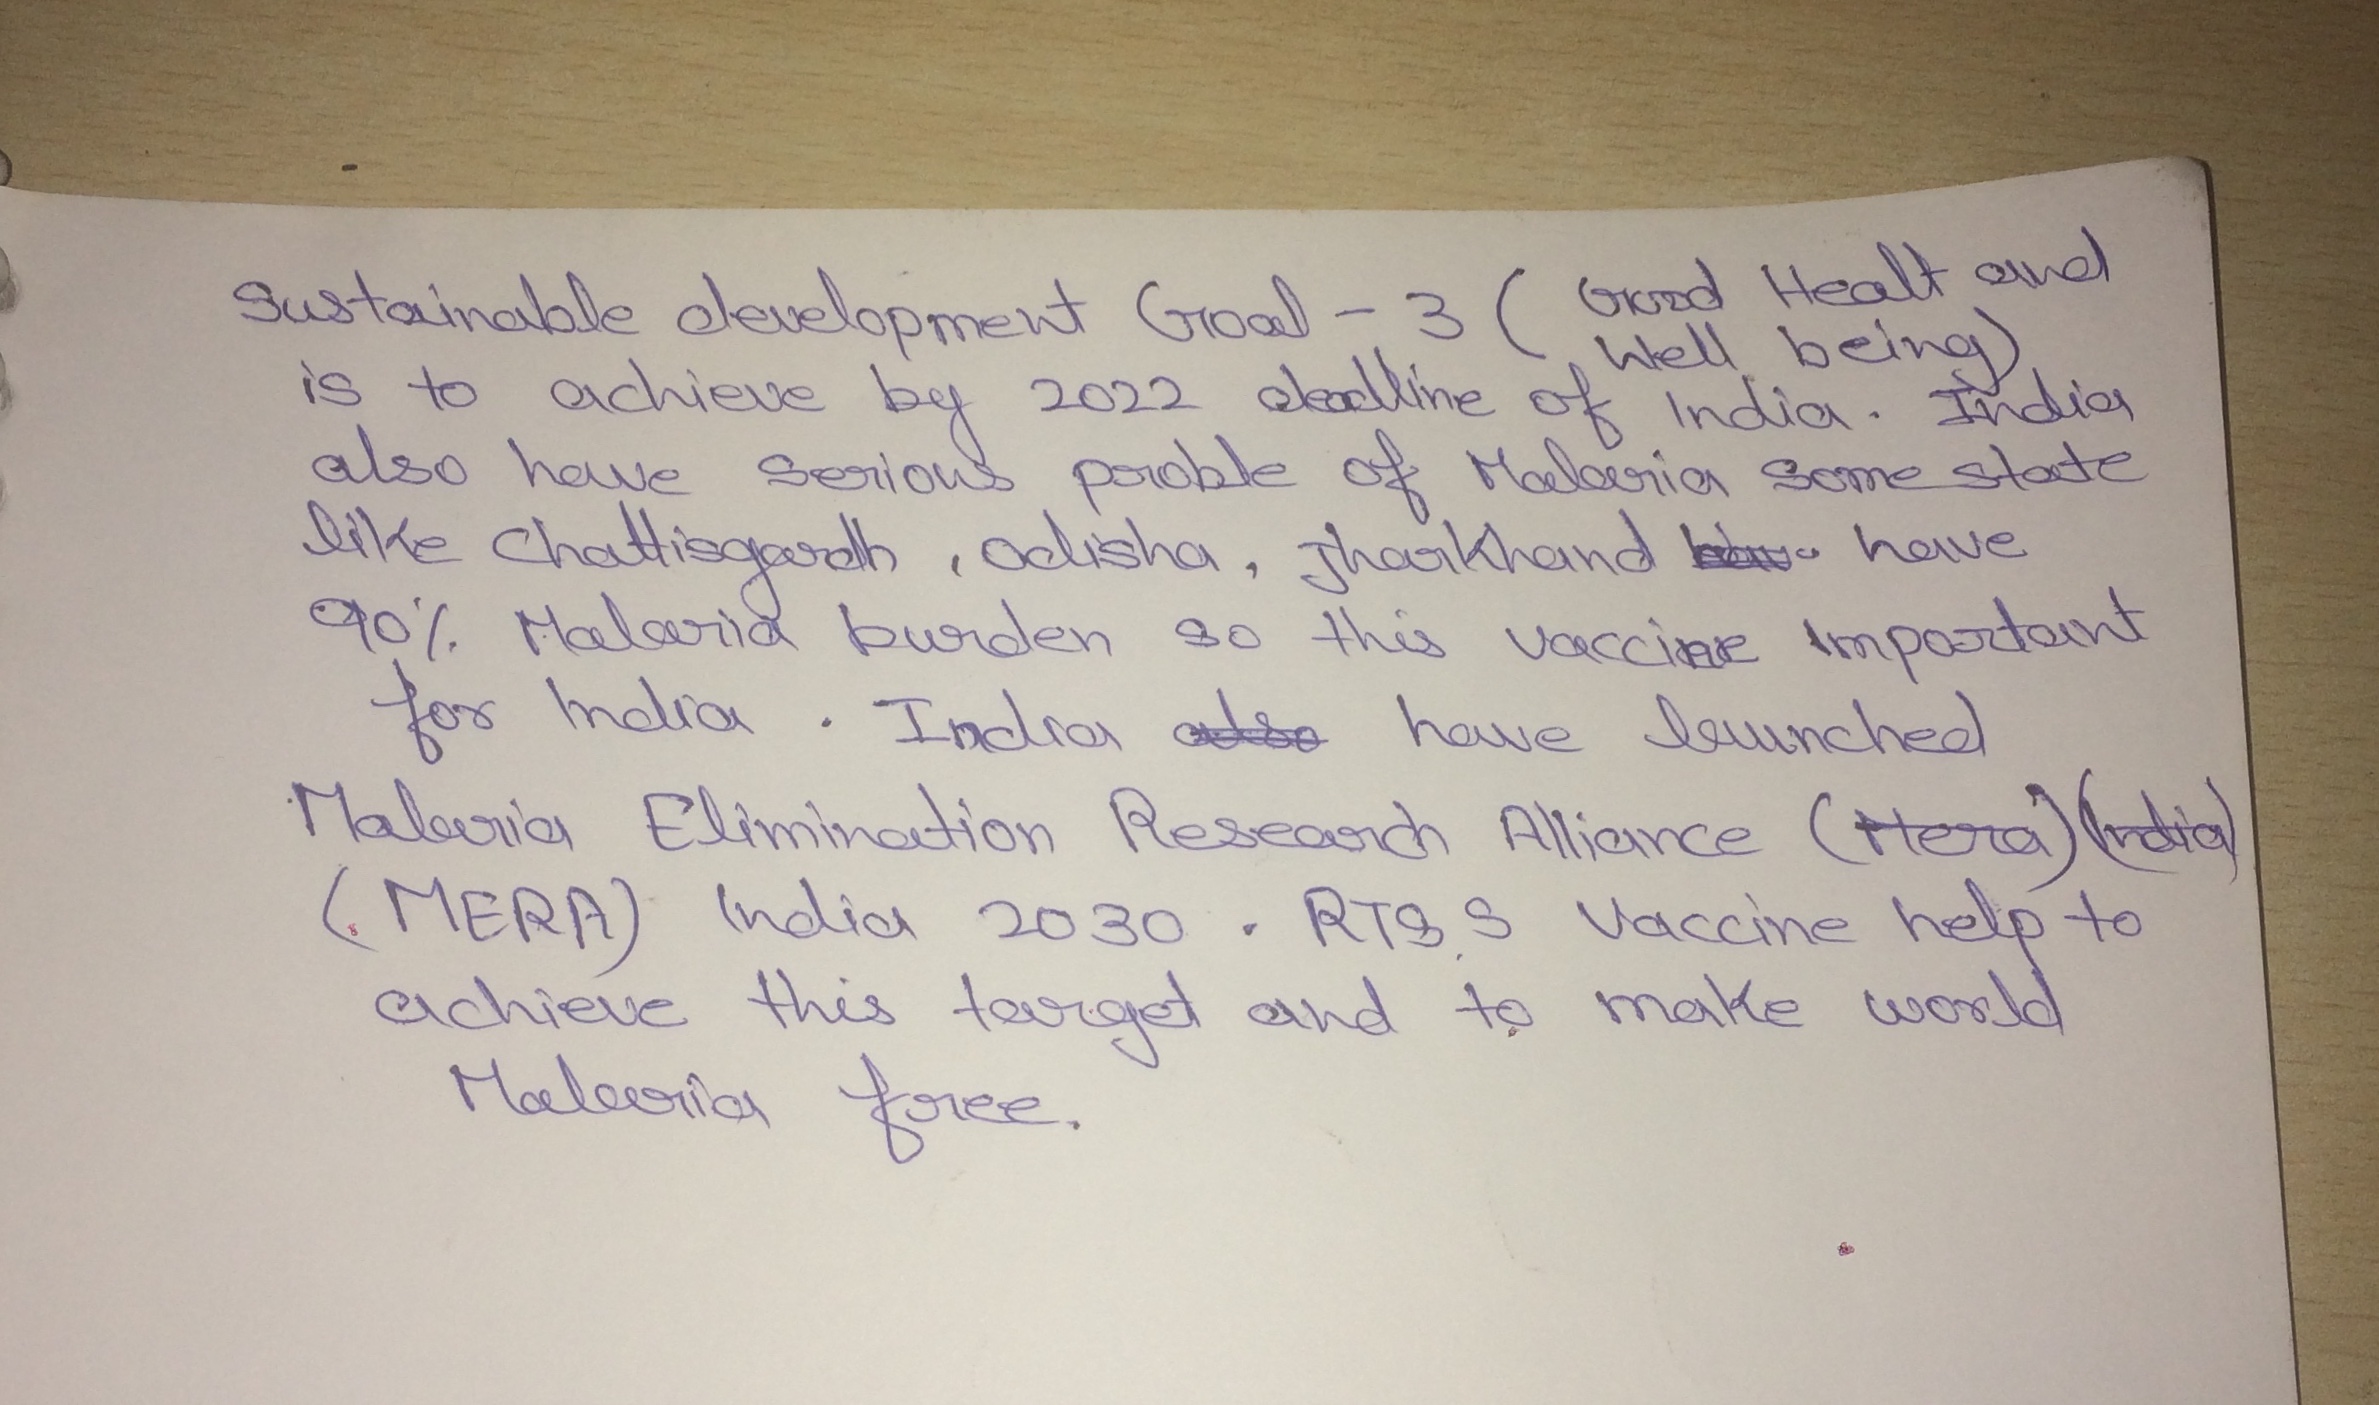 Sustainable development Goal - 3 ( Good Healt and
Well being)
is to achieve by 2022 deadline of India. India
also have serious proble of Malaria some state
like Chattisgardh, Odisha, Jharkhand have
90% Malaria burden so this vaccine important
for India. India also have launched
Malaria Elimination Research Alliance (Mera) (India)
(MERA) India 2030. RTS,S Vaccine help to
achieve this target and to make world
Malaria free.